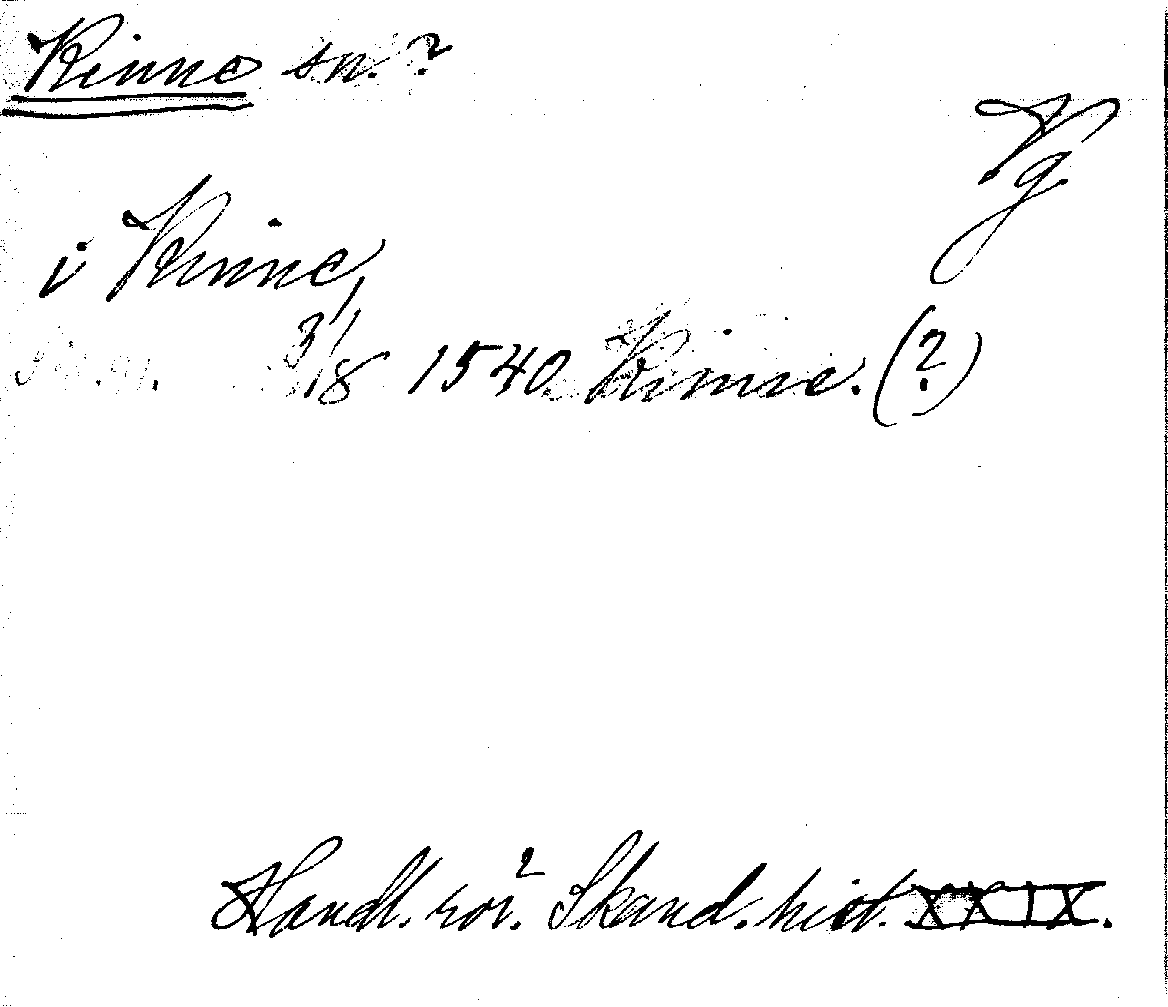 Kinne sn. ?
Vg
i Kinne,
3/8 1540. Kinne. (?)
Handl. rör. Skand. hist. XXIX.